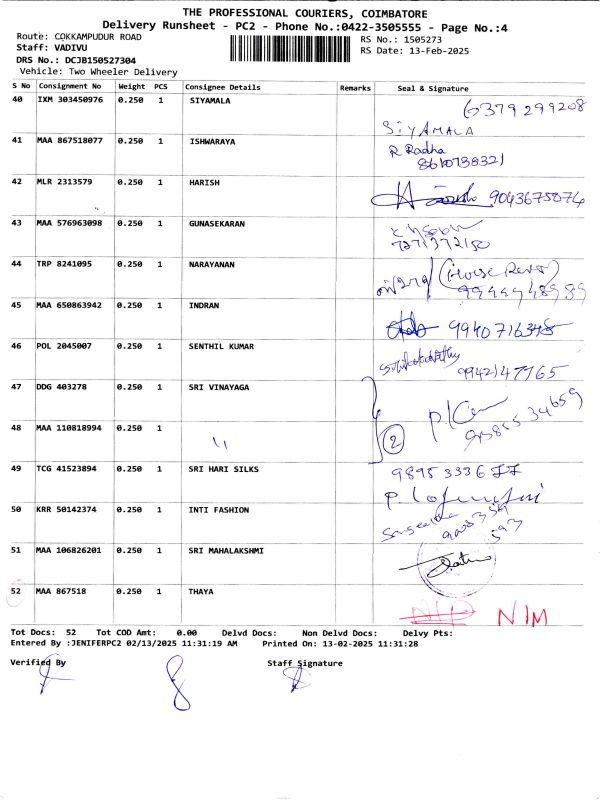 THE PROFESSIONAL COURIERS, COIMBATORE
Delivery Runsheet - PC2 - Phone No.:0422-3505555 - Page No.:4
Route: COKKAMPUDUR ROAD
RS No.: 1505273
Staff: VADIVU
RS Date: 13-Feb-2025
DRS No.: DCJB150527304
Vehicle: Two Wheeler Delivery
S No Consignment No Weight PCS Consignee Details Remarks Seal & Signature
40 IXM 303450976 0.250 1 SIYAMALA 6379299208
SIYAMALA
41 MAA 867518077 0.250 1 ISHWARAYA R Radha
8610738321
42 MLR 2313579 0.250 1 HARISH 9043675874
43 MAA 576963098 0.250 1 GUNASEKARAN
44 TRP 8241095 0.250 1 NARAYANAN
45 MAA 650863942 0.250 1 INDRAN 9940716348
46 POL 2045007 0.250 1 SENTHIL KUMAR 9942147765
47 DDG 403278 0.250 1 SRI VINAYAGA
48 MAA 110818994 0.250 1 2
49 TCG 41523894 0.250 1 SRI HARI SILKS
50 KRR 50142374 0.250 1 INTI FASHION
51 MAA 106826201 0.250 1 SRI MAHALAKSHMI
52 MAA 867518 0.250 1 THAYA
NIM
Tot Docs: 52 Tot COD Amt: 0.00 Delvd Docs: Non Delvd Docs: Delvy Pts:
Entered By :JENIFERPC2 02/13/2025 11:31:19 AM Printed On: 13-02-2025 11:31:28
Verified By Staff Signature